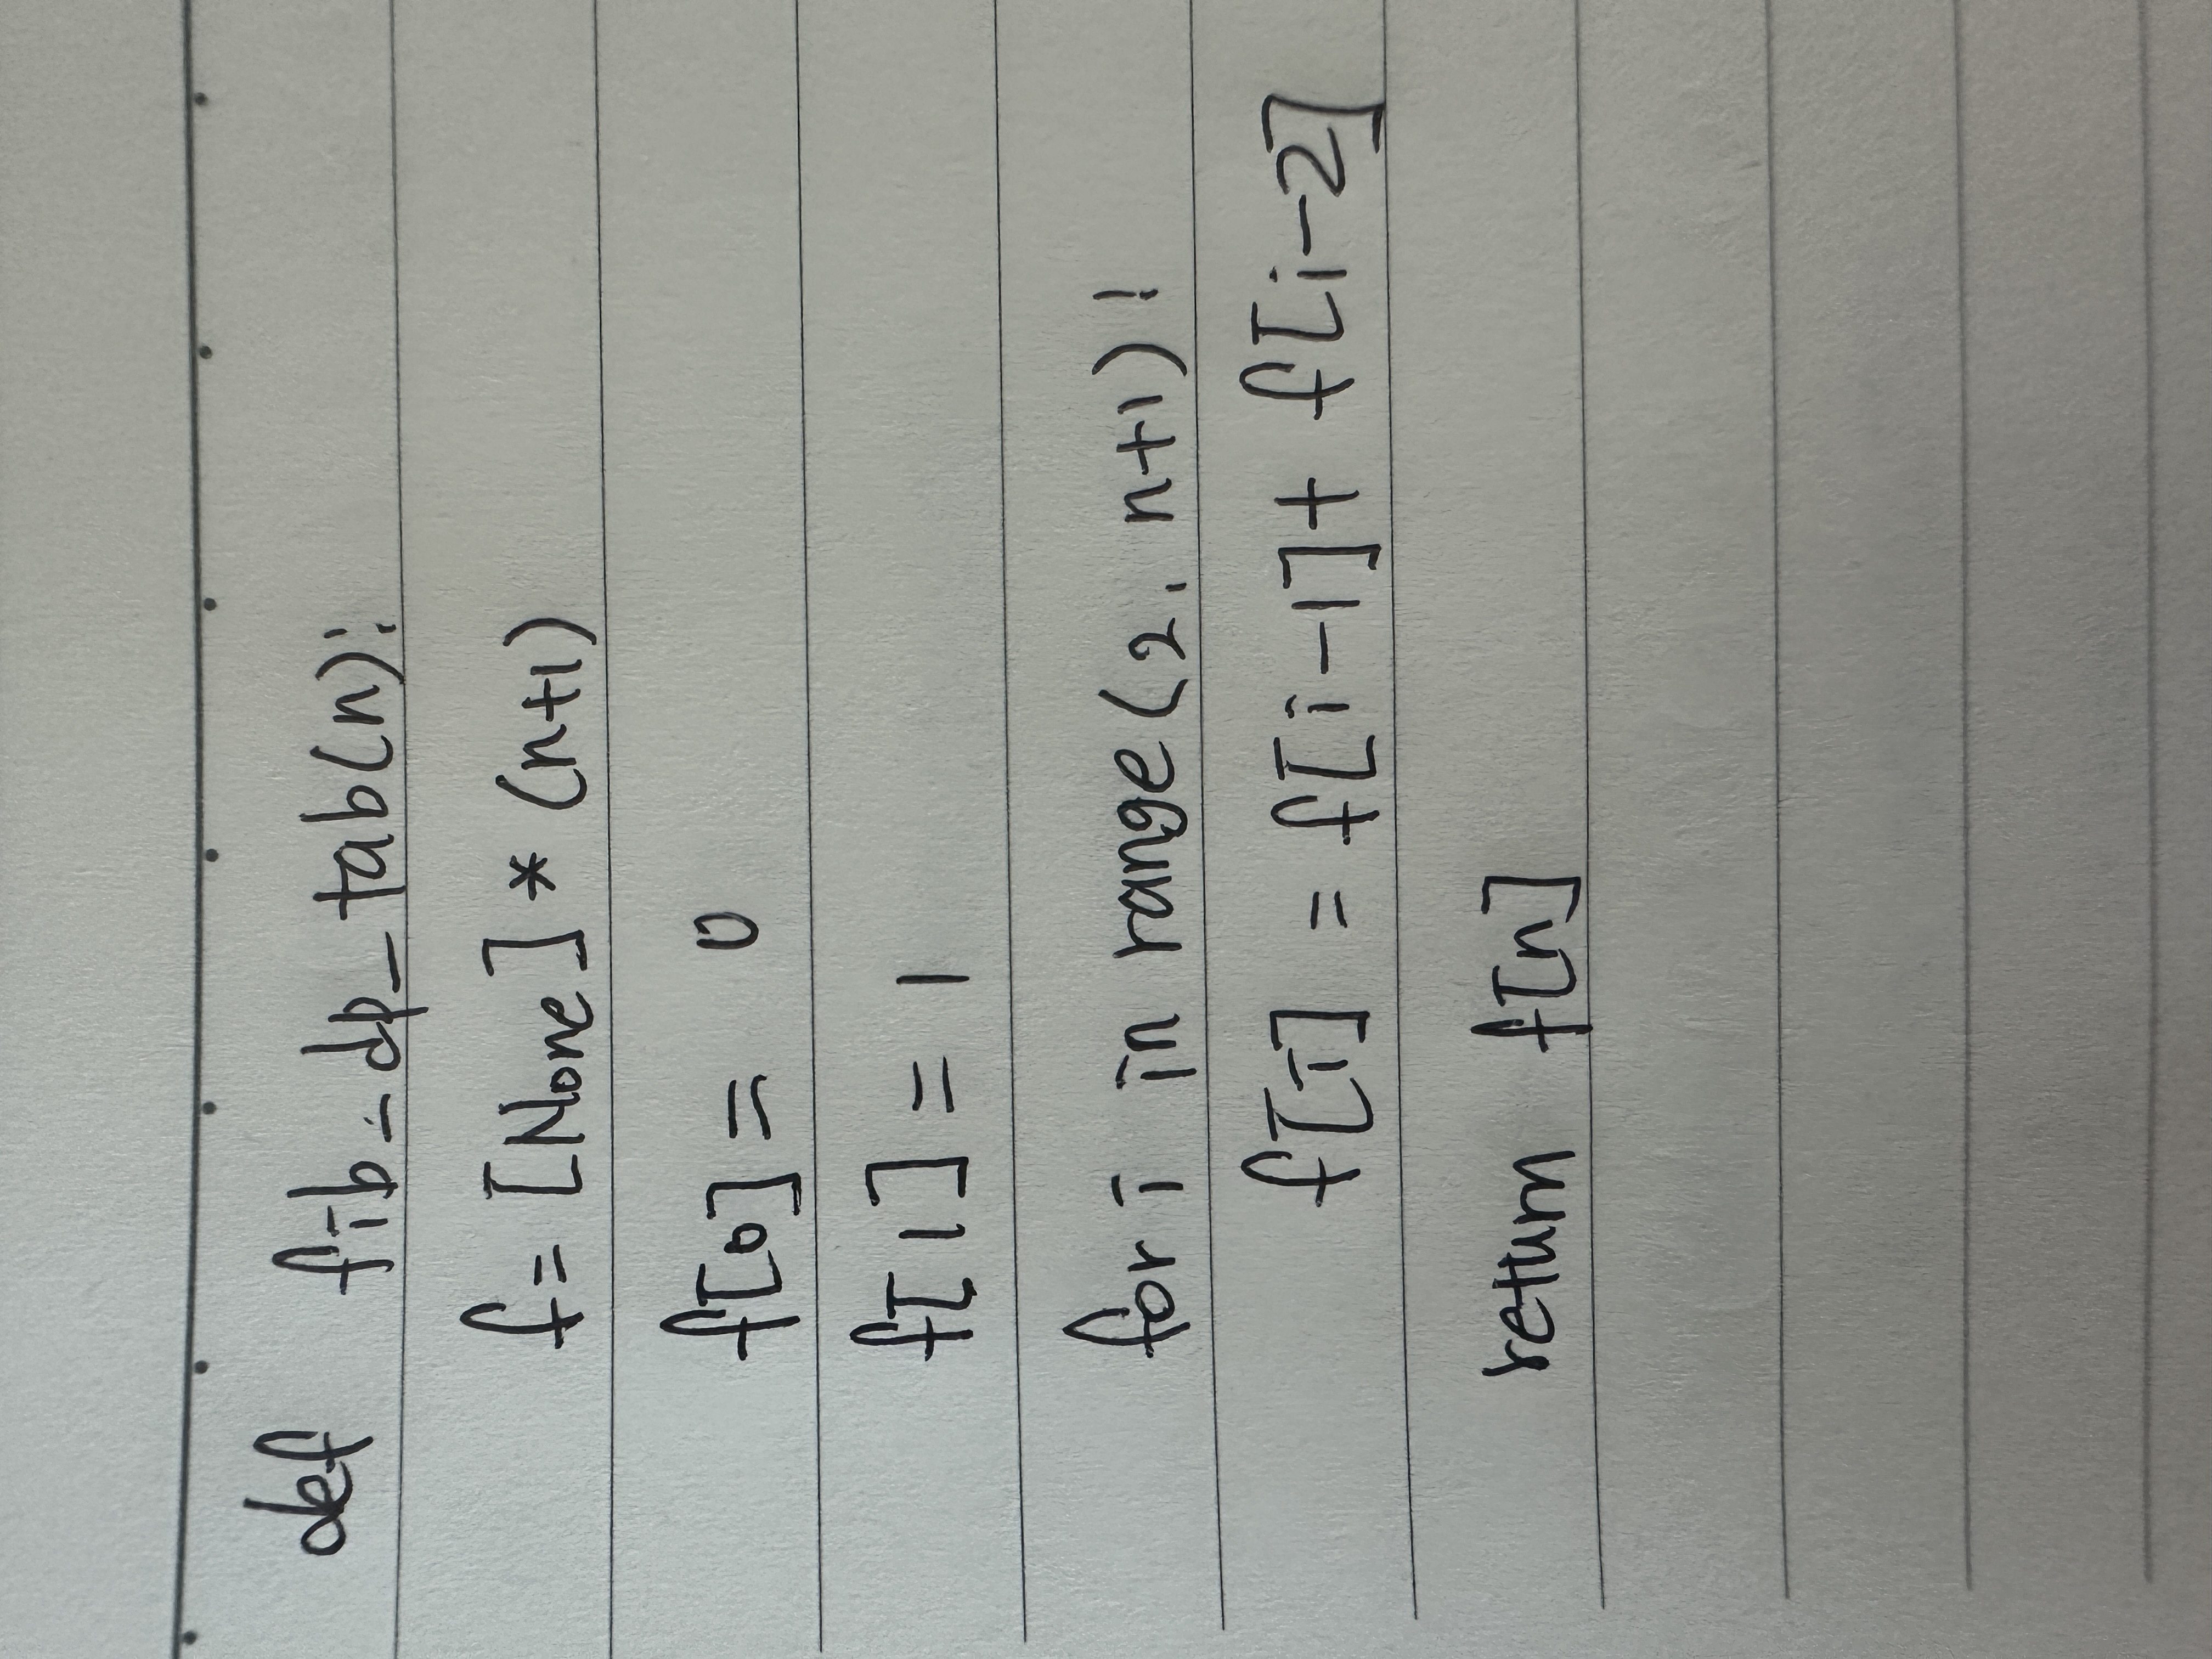 def fib_dp_tab(n):
f= [None] * (n+1)
f[0] = 0
f[1] = 1
for i in range(2, n+1):
f[i] = f[i-1]+ f[i-2]
return f[n]